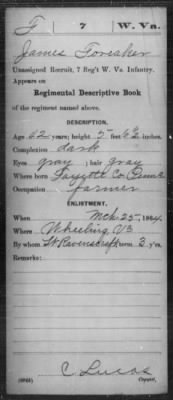 F 7 W. Va.
James Foraker
Unassigned Recruit, 7 Reg't W. Va. Infantry.
Appears on
Regimental Descriptive Book
of the regiment named above.
DESCRIPTION.
Age 62 years; height 5 feet 6½ inches.
Complexion dark
Eyes gray; hair gray
Where born Fayette Co Penna
Occupation farmer
ENLISTMENT.
When Mch 25, 1864.
Where Wheeling Va
By whom Lt Ravenscraft; term 3 y'rs.
Remarks:
C Lucas
Copyist.